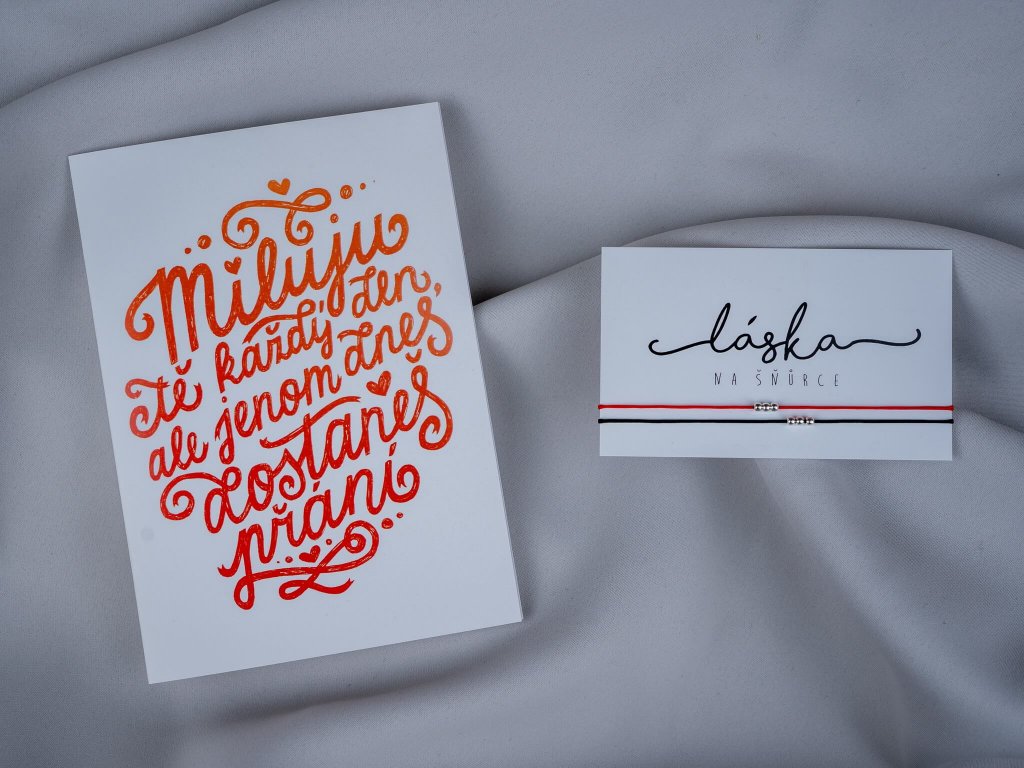 Miluju
tě každý den,
ale jenom dnes
dostaneš
přání
láska
NA ŠŇŮRCE